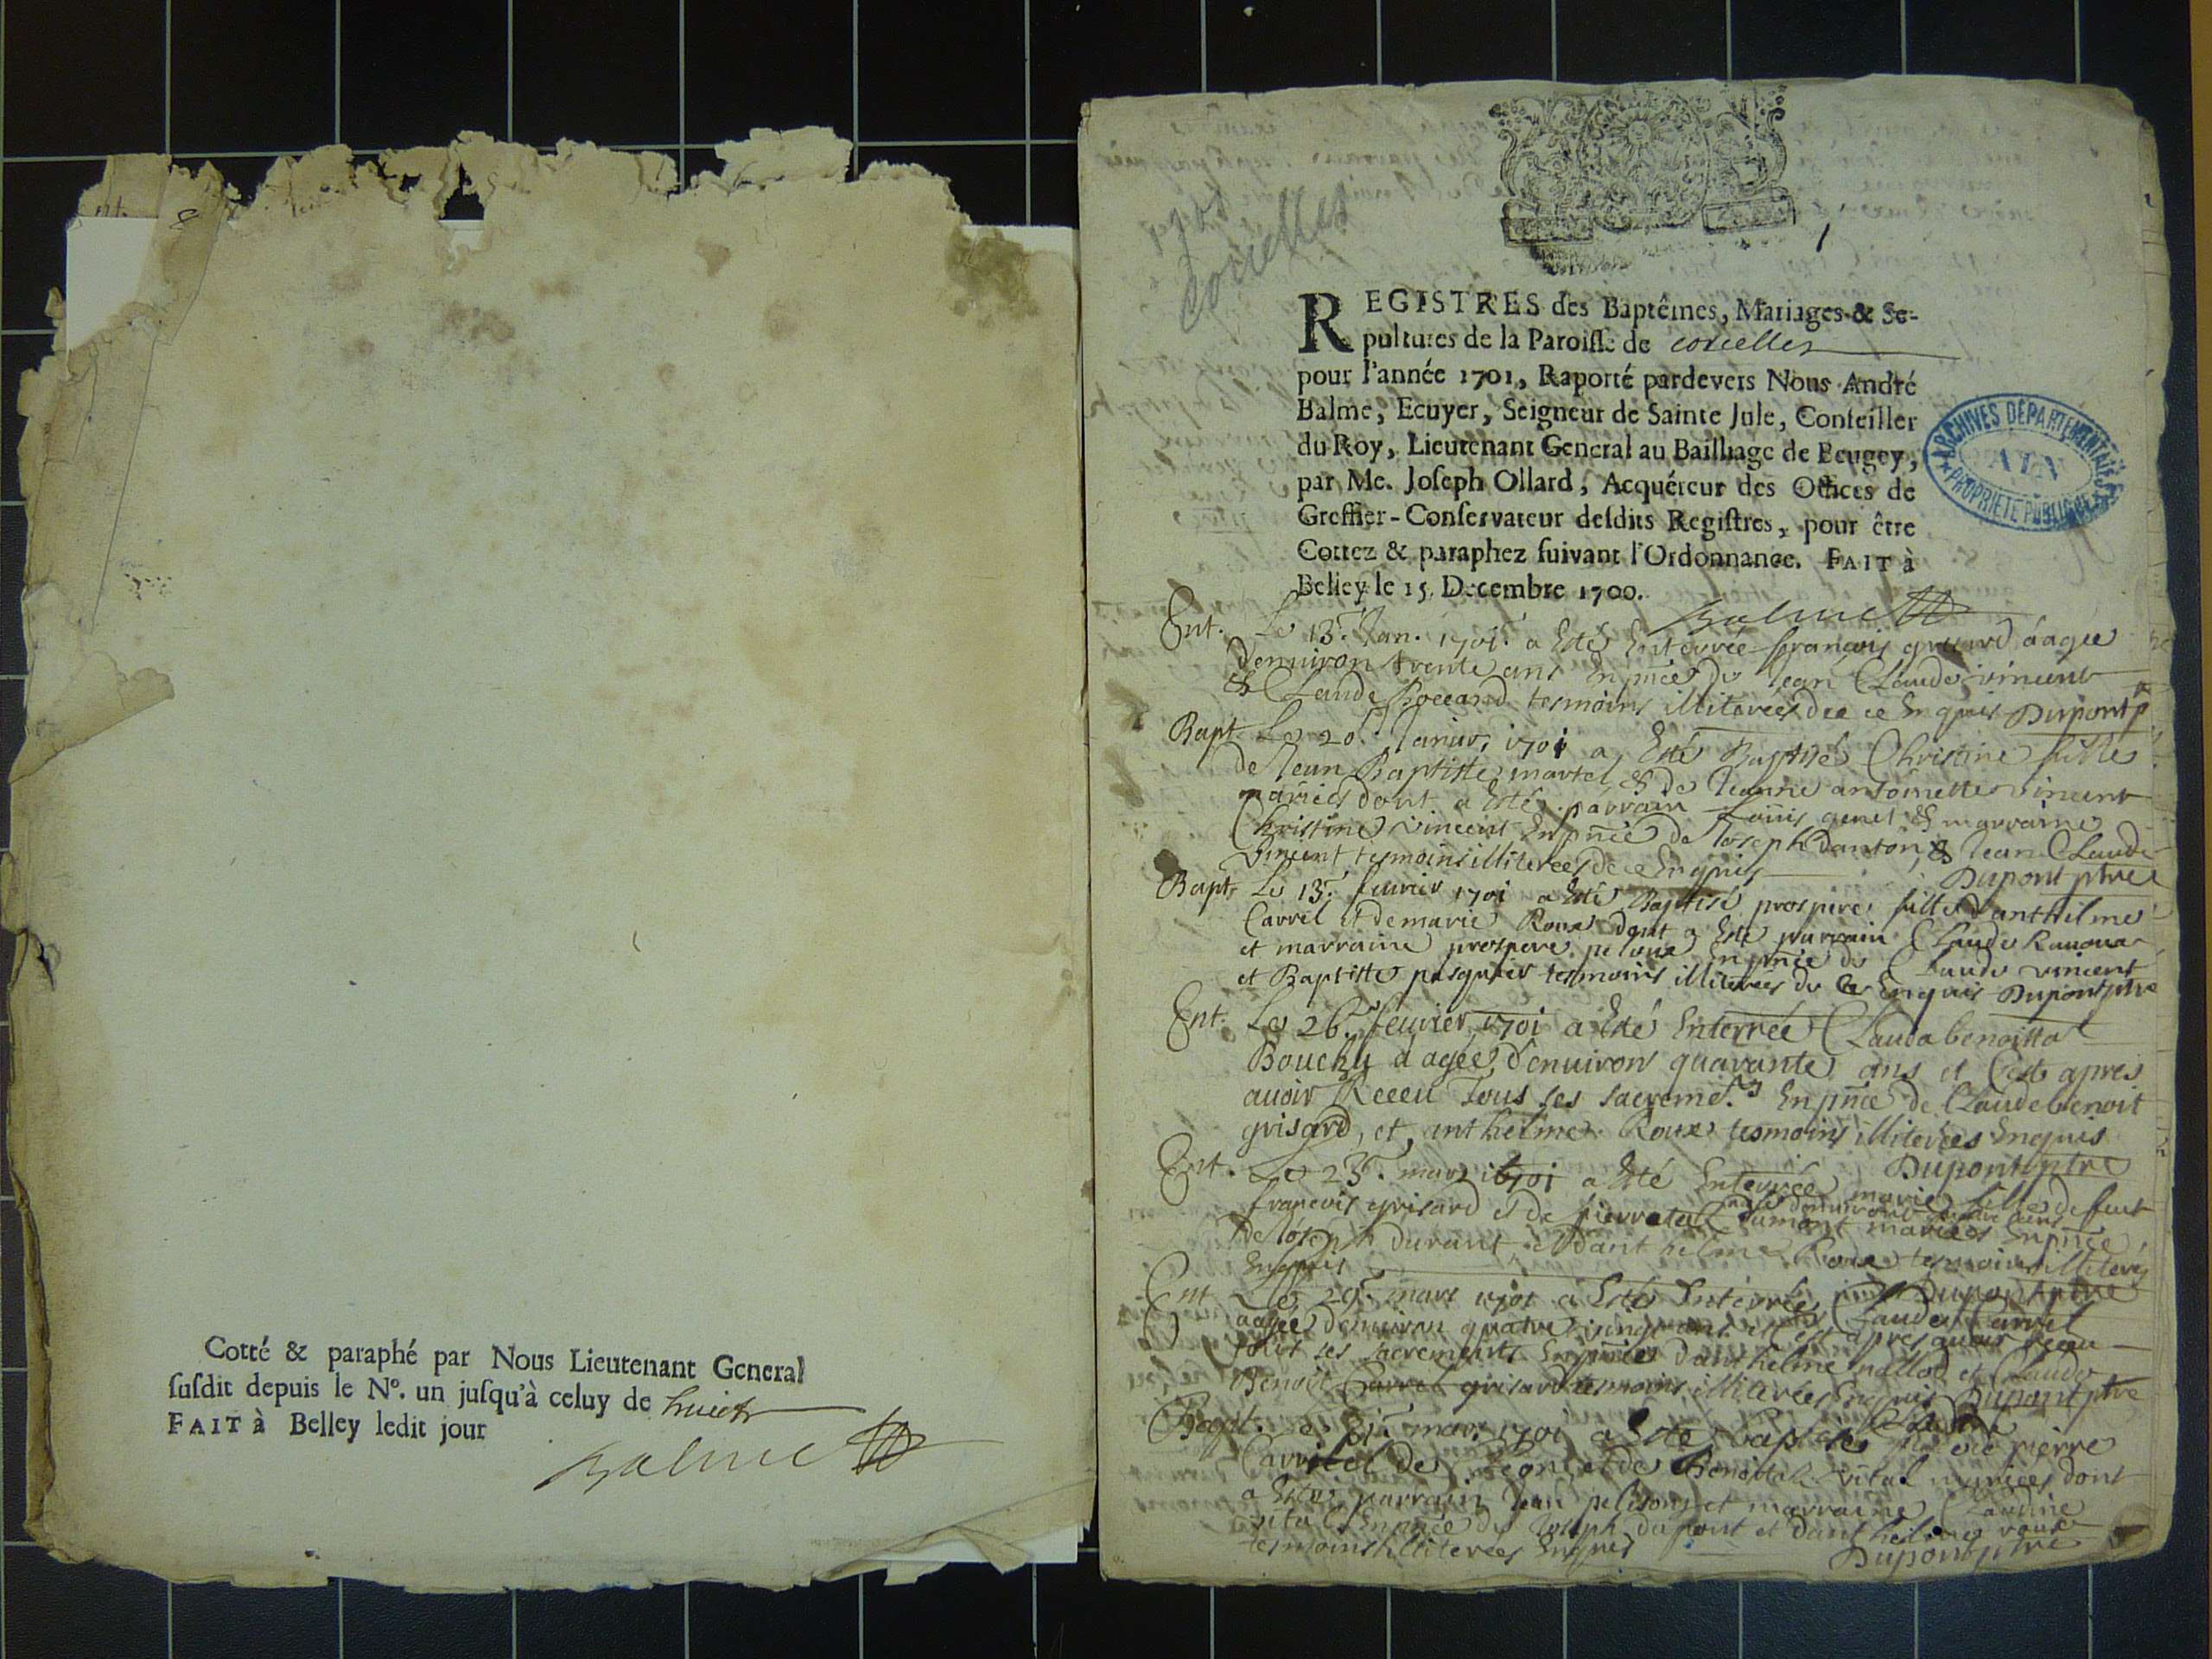 Cotté & paraphé par Nous Lieutenant General
susdit depuis le N°. un jusqu'à celuy de huict
FAIT à Belley ledit jour
Balme
1701
Corcelles
1
REGISTRES des Baptêmes, Mariages & Se-
pultures de la Paroisse de corcelles
pour l'année 1701, Raporté pardevers Nous André
Balme, Ecuyer, Seigneur de Sainte Jule, Conseiller
du Roy, Lieutenant General au Bailliage de Beugey,
par Me. Joseph Ollard, Acquéreur des Offices de
Greffier-Conservateur desdits Registres, pour être
Cottez & paraphez suivant l'Ordonnance. FAIT à
Belley le 15. Decembre 1700.
Balme
ARCHIVES DÉPARTEMENTALES
AIN
PROPRIÉTÉ PUBLIQUE
Ent. Le 13e. Jan. 1701. a Esté Enterrée françois grisard aagee
denuiron trente ans En pnce de Jean Claude vincent
& Claude Boccand tesmoins illiterees de ce Enquis Dupont p
Bapt. Le 20e. Januier 1701 a Esté Baptisé Christine fille
de Jean Baptiste martel & de Jeanne antoinette vincent
mariés dont a Esté parrain Louis genet & marraine
Christine vincent En pnce de Joseph danton & Jean Claude
Vincent tesmoins illiterees de ce Enquis Dupont ptre
Bapt. Le 13e. feurier 1701 a Esté Baptisé prospere fille d'anthelme
Carrel et de marie Roux dont a Esté parrain Claude
et marraine prospere peloux En pnce de Claude vincent
et Baptiste pasquier tesmoins illiterées de ce Enquis Dupont ptre
Ent. Le 26e. feurier 1701 a Esté Enterrée Clauda benoitta
Bouchy aagée d'enuiron quarante ans et C'est apres
auoir Receu Tous ses sacremets En pnce de Claude benoit
grisard, et anthelme Roux tesmoins illiterées Enquis
Dupont ptre
Ent. Le 23e. mars 1701 a Esté Enterrée marie fille de feut
françois grisard et de pierreta Dumont mariés En pnce
de Joseph durant et d'ant helme Roux tesmoins illiteres
Enquis Dupont ptre
Ent Le 29e. mars 1701 a Esté Enterrée Claude Carrel
aagée denuiron quatre uingt ans et c'est apres auoir Receu
tous ses sacrements En pnce d'anthelme mallod et Claude
Benoit Carrel grisard tesmoins illiterées Enquis Dupont ptre
Bapt. mars 1701 a Esté Baptisé pierre
Carrel de et de Benoitta vital mariées dont
a Esté parrain Jean pelisson et marraine Claudine
vital En pnce de Joseph dupont et d'ant helme roux
tesmoins illiterées Enquis Dupont ptre